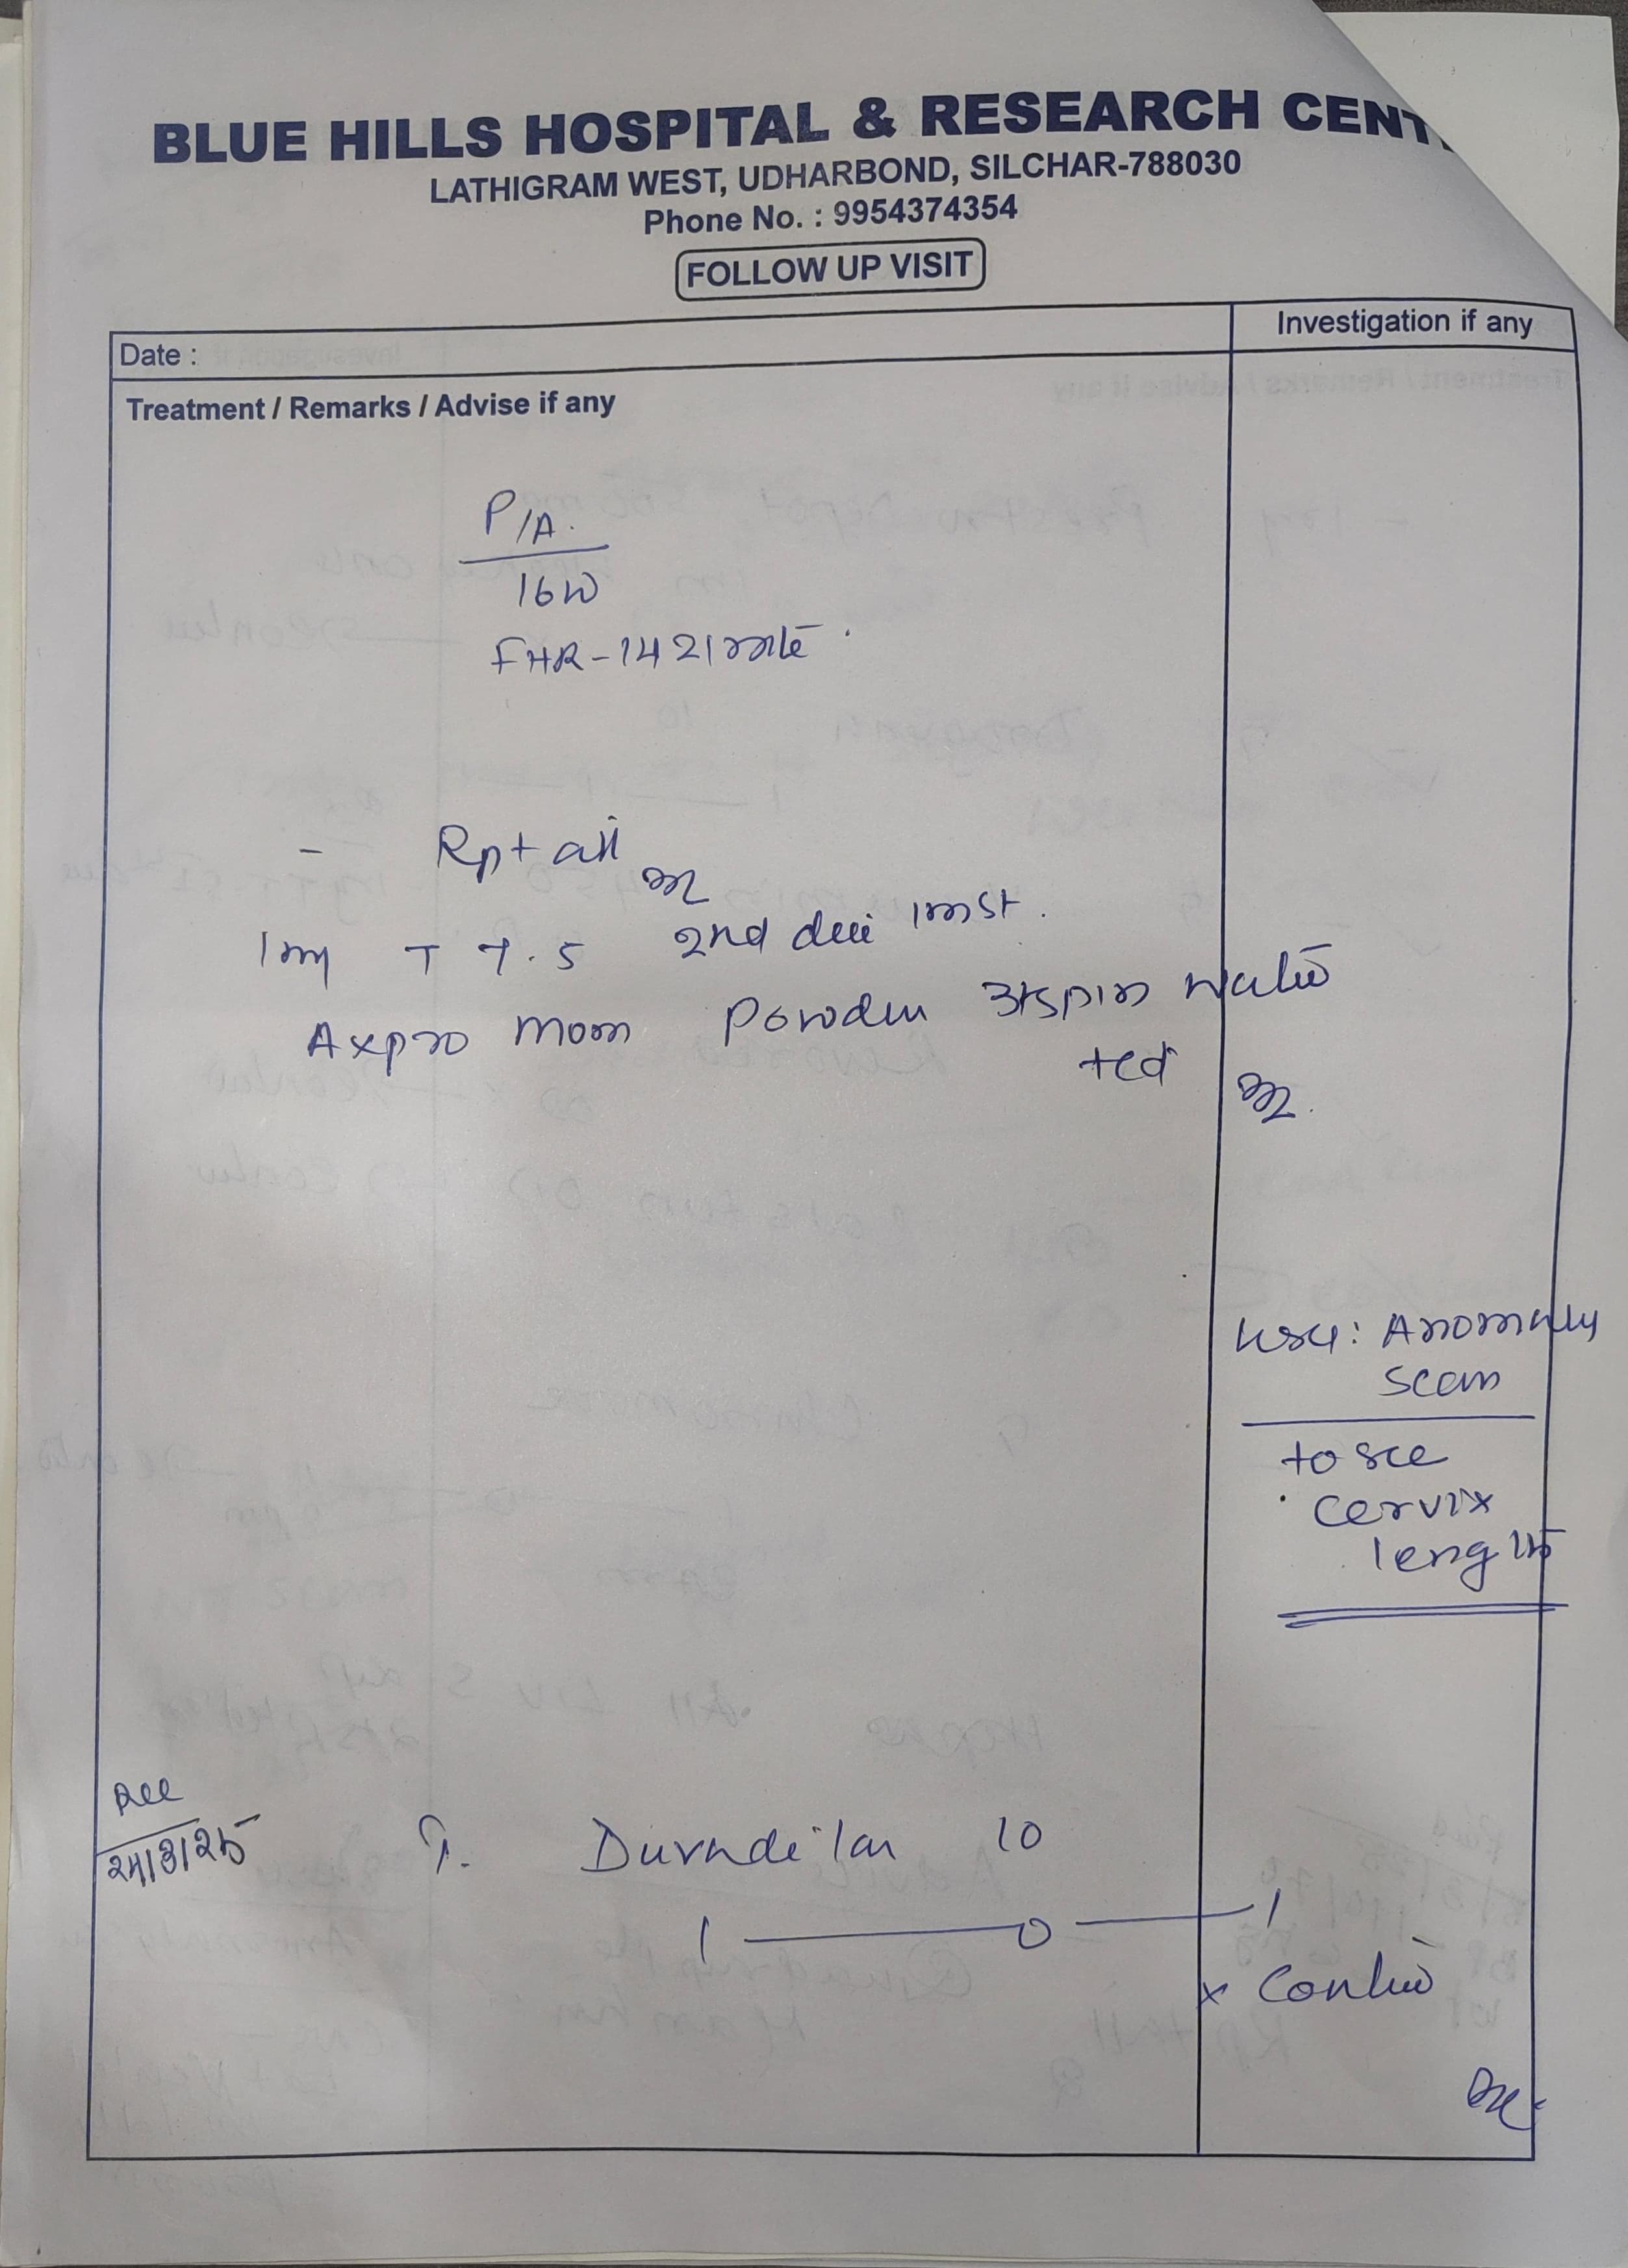 BLUE HILLS HOSPITAL & RESEARCH CENT
LATHIGRAM WEST, UDHARBOND, SILCHAR-788030
Phone No. : 9954374354
FOLLOW UP VISIT
Date :
Investigation if any
Treatment / Remarks / Advise if any
P/A.
16W
FHR-142/
- Rpt all
Inj T T. 5 2nd
Axpro Mom Powder 3tspin
USG: Anomaly
scan
to see
cervix
length
T. Duvadilan 10
1 — 0 — 1
x